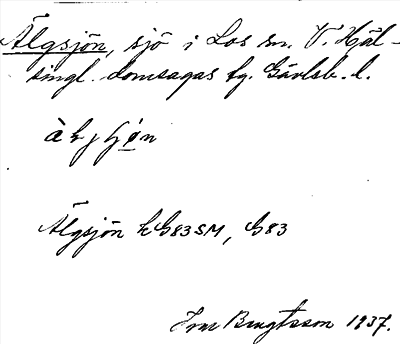 Älgsjön, sjö i Los sn. V. Häl-
singl. domsagas tg. Gävleb. l.
Älgsjön k G83SM, G83
Bengtsson 1937.